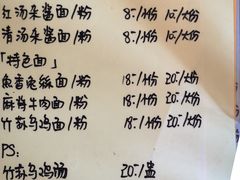 红汤杂酱面/粉 8-/小份 10-/大份
清汤杂酱面/粉 8-/小份 10-/大份
「特色面」
鱼香兔丝面/粉 18-/小份 20-/大份
麻辣牛肉面/粉 18-/小份 20-/大份
竹荪乌鸡面/粉 18-/小份 20-/大份
PS:
竹荪乌鸡汤 20-/盅